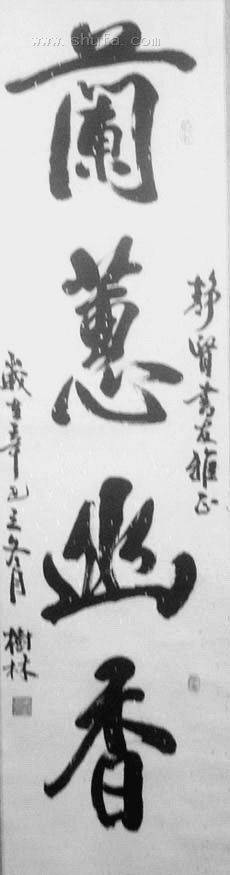 www.shufa.com
蘭蕙幽香
静賢書友雅正
歲在辛巳之冬月
樹林